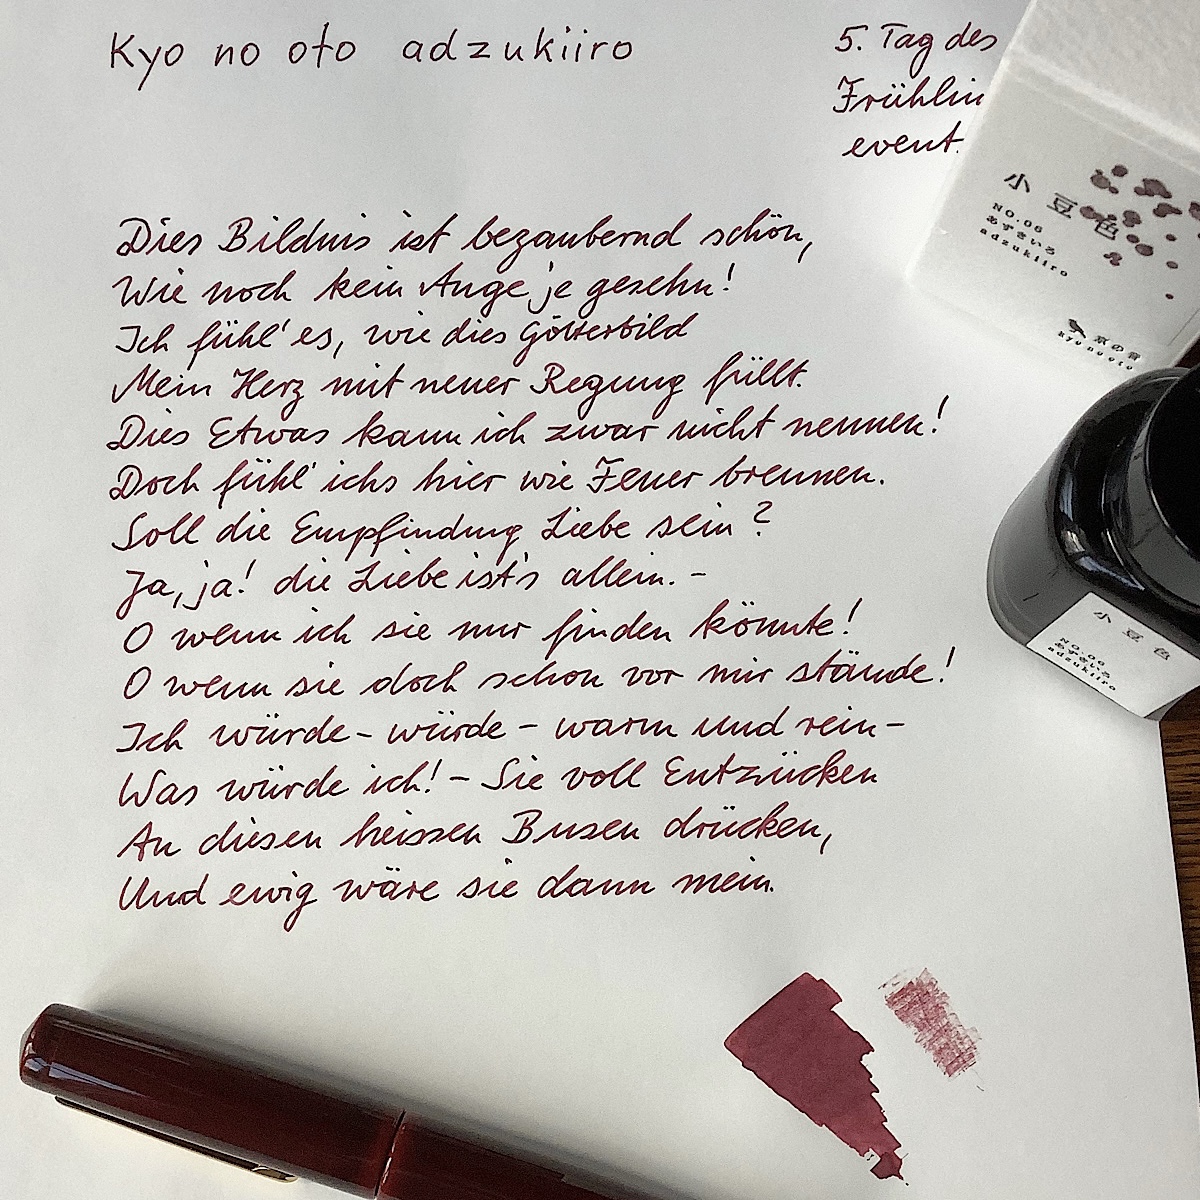 Kyo no oto adzukiiro
5. Tag des
Frühlin
event.
Dies Bildnis ist bezaubernd schön,
Wie noch kein Auge je gesehn!
Ich fühl' es, wie dies Götterbild
Mein Herz mit neuer Regung füllt.
Dies Etwas kann ich zwar nicht nennen!
Doch fühl' ichs hier wie Feuer brennen.
Soll die Empfindung Liebe sein?
Ja, ja! die Liebe ist's allein. –
O wenn ich sie nur finden könnte!
O wenn sie doch schon vor mir stände!
Ich würde – würde – warm und rein –
Was würde ich! – Sie voll Entzücken
An diesen heissen Busen drücken,
Und ewig wäre sie dann mein.
小豆色
NO.06
あずきいろ
adzukiiro
京の音
kyo no oto
小豆色
NO.06
あずきいろ
adzukiiro